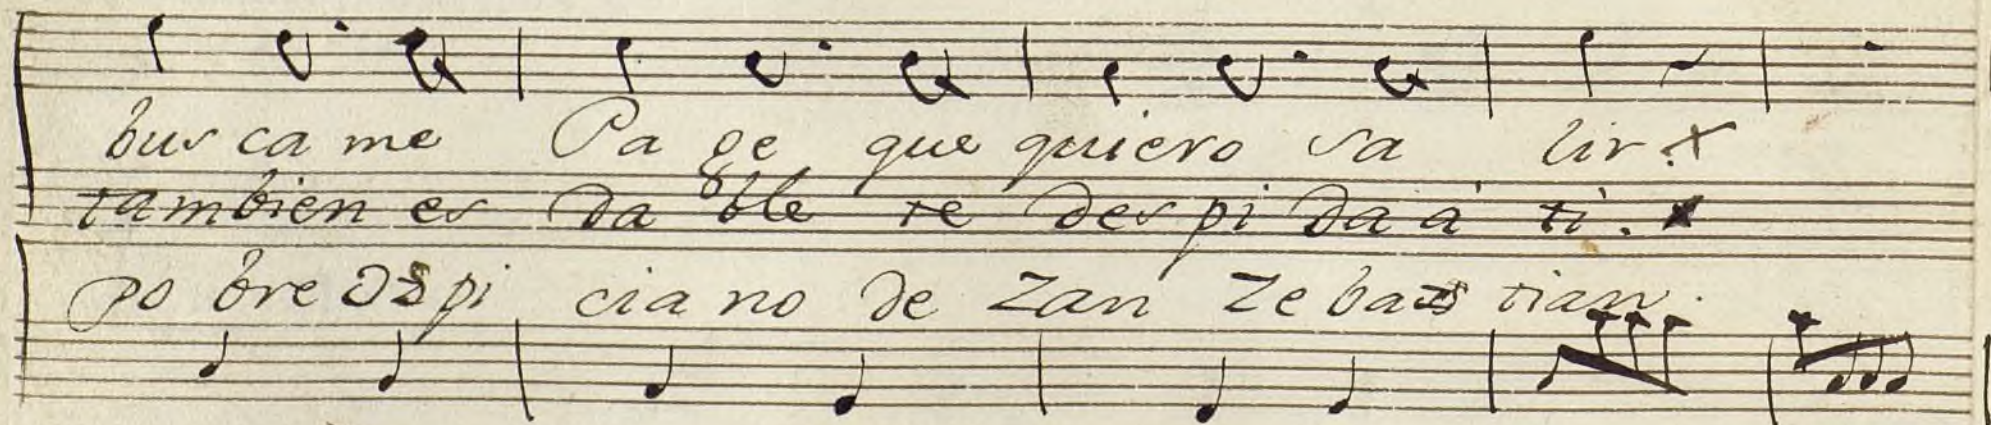 bus ca me Pa ge que quiero sa lir. x
tambien es da ble te des pi da á ti. x
po bre Ospi cia no de Zan Ze bas tian.